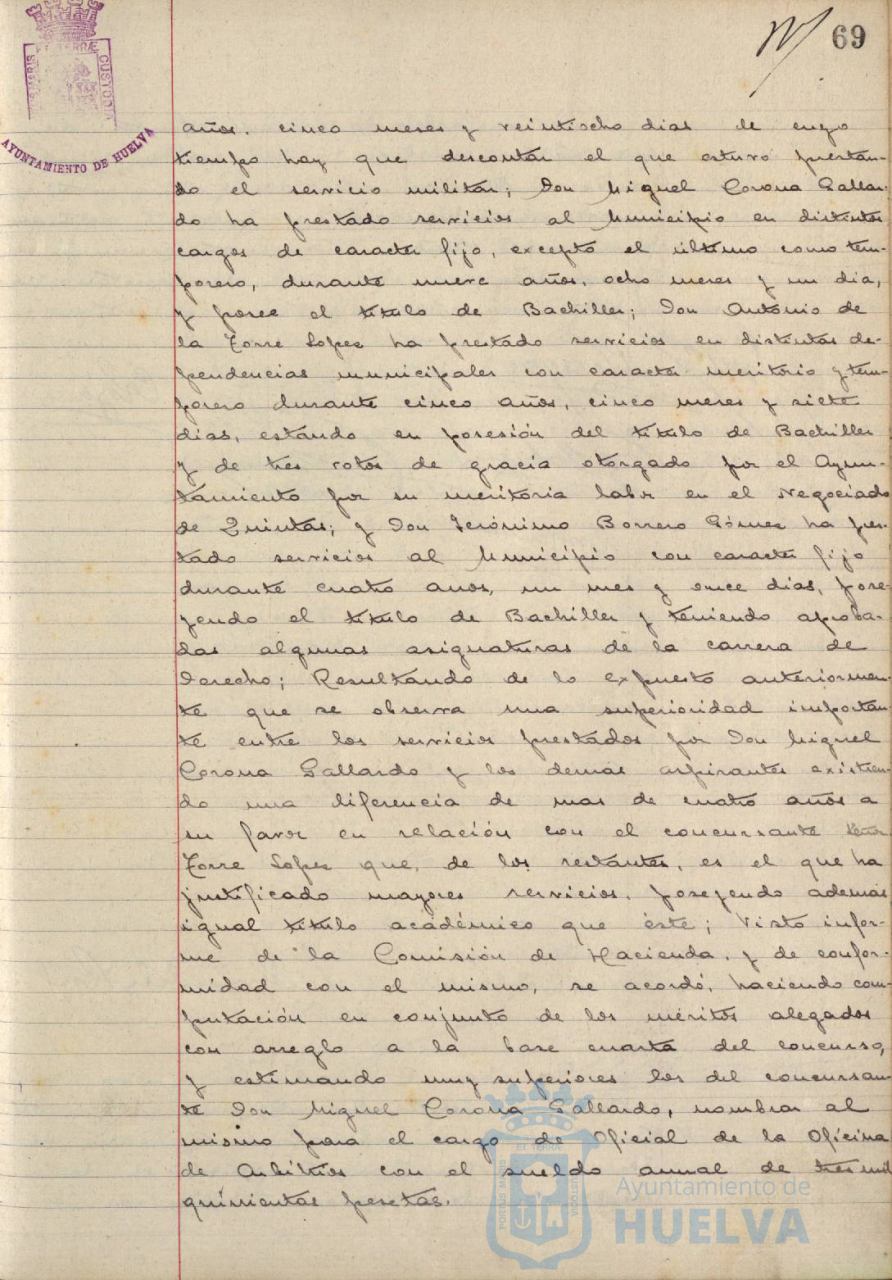 69
PORTUS MARIS ET TERRÆ CUSTODIA
AYUNTAMIENTO DE HUELVA
años, cinco meses y veintiocho dias de cuyo
tiempo hay que descontar el que estuvo prestan-
do el servicio militar; Don Miguel Corona Gallar-
do ha prestado servicios al Municipio en distintos
cargos de caracter fijo, excepto el último como tem-
porero, durante nueve años, ocho meses y un dia,
y posee el titulo de Bachiller; Don Antonio de
la Torre Lopez ha prestado servicios en distintas de-
pendencias municipales con caracter meritorio y tem-
porero durante cinco años, cinco meses y siete
dias, estando en posesión del titulo de Bachiller
y de tres votos de gracia otorgado por el Ayun-
tamiento por su meritoria labor en el Negociado
de Quintas; y Don Jerónimo Borrero Gómez ha pres-
tado servicios al Municipio con caracter fijo
durante cuatro anos, un mes y once dias, pose-
yendo el titulo de Bachiller y teniendo aproba-
das algunas asignaturas de la carrera de
Derecho; Resultando de lo expuesto anteriormen-
te que se observa una superioridad importan
te entre los servicios prestados por Don Miguel
Corona Gallardo y los demas aspirantes existien-
do una diferencia de mas de cuatro años a
su favor en relación con el concursante señor
Torre Lopez que, de los restantes, es el que ha
justificado mayores servicios, poseyendo ademas
igual titulo académico que éste; Visto infor-
me de la Comisión de Hacienda, y de confor-
midad con el mismo, se acordó, haciendo com-
putación en conjunto de los méritos alegados
con arreglo a la base cuarta del concurso,
y estimando muy superiores los del concursan-
te Don Miguel Corona Gallardo, nombrar al
mismo para el cargo de Oficial de la Oficina
de Arbitrios con el sueldo anual de tres mil
quinientas pesetas.
Ayuntamiento de
HUELVA